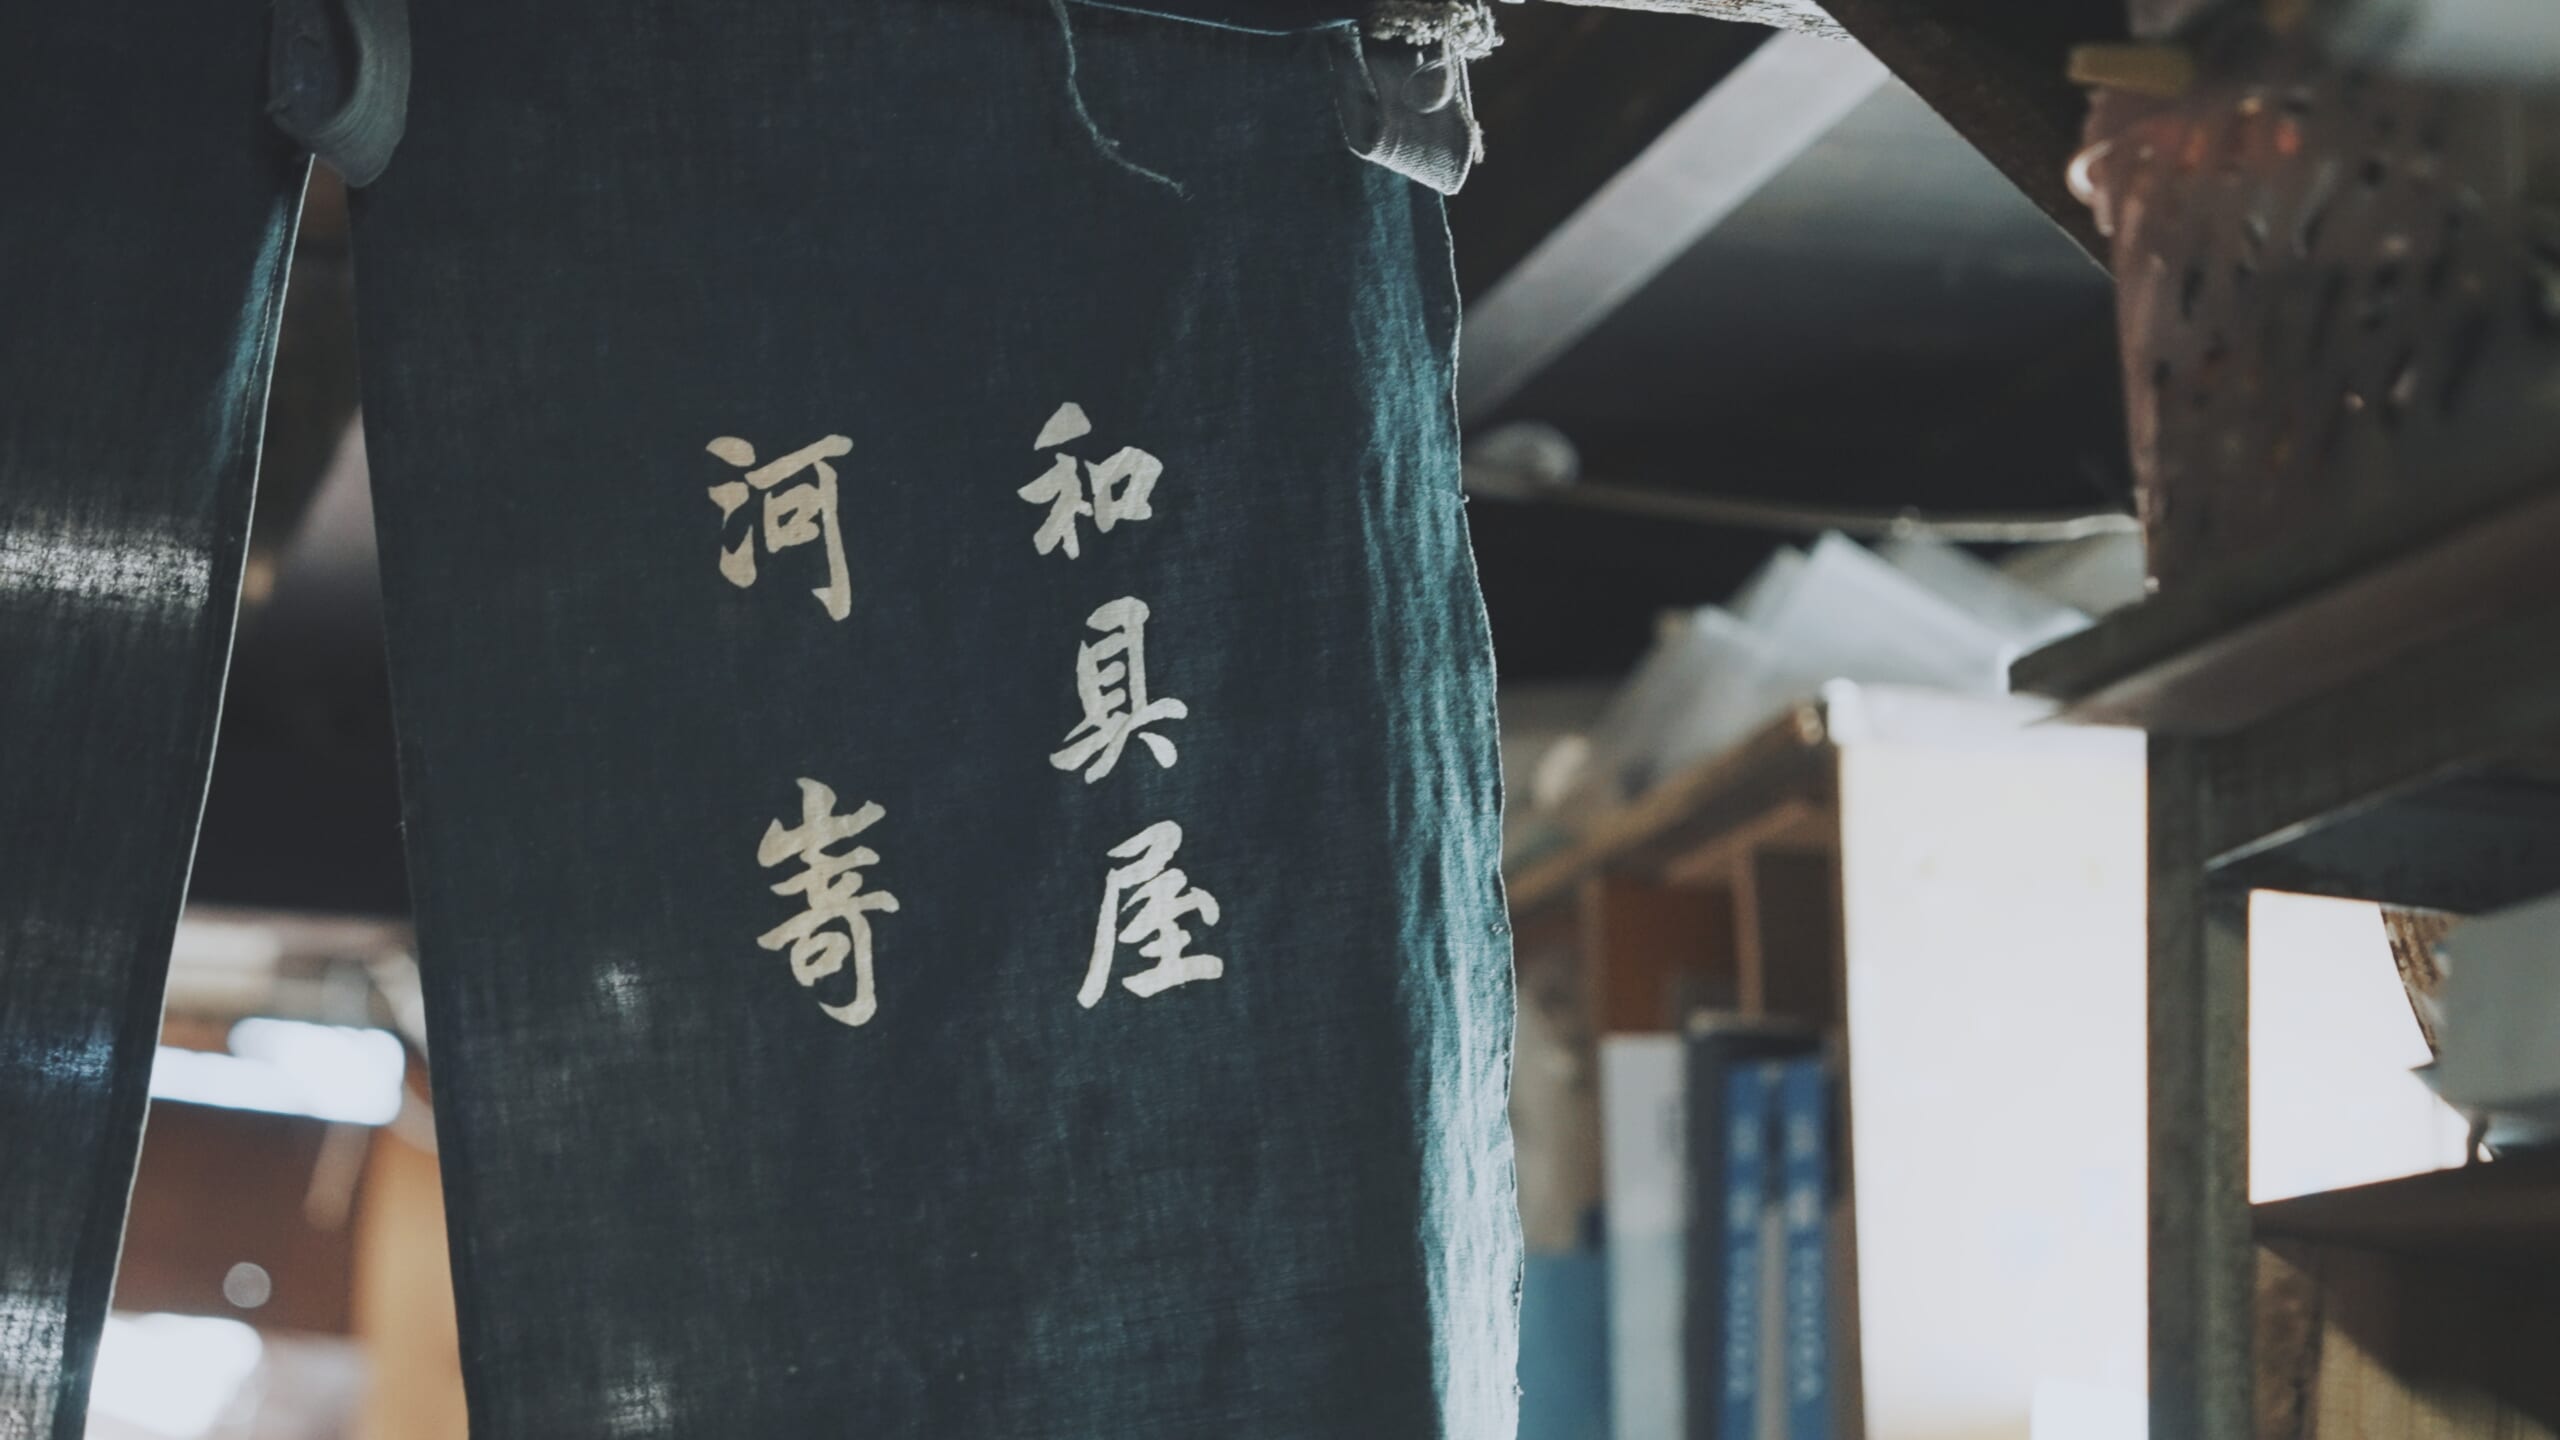 和具屋
河嵜